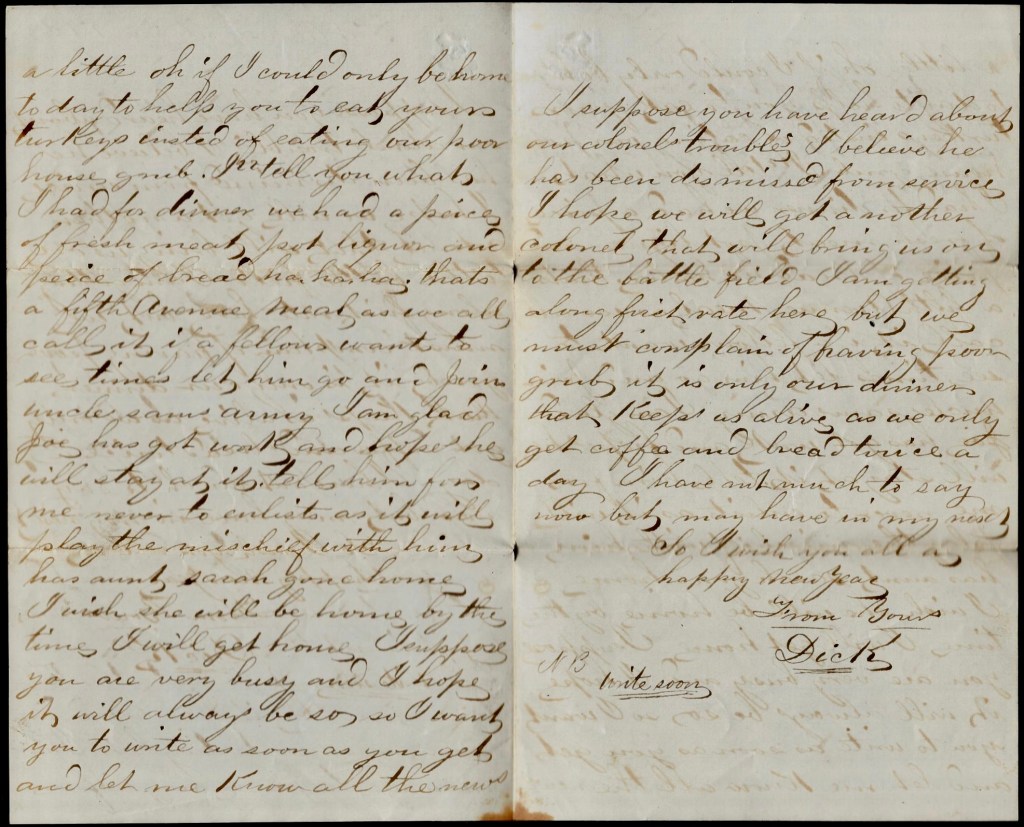 a little oh if I could only be home
to day to help you to eat your
turkeys insted of eating our poor
house grub. Ill tell you what
I had for dinner we had a peice
of fresh meat, pot liquor and
peice of bread ha. ha. ha. thats
a fifth Avenue meal as we all
call it if a fellow want to
see times let him go and Join
uncle sams army I am glad
Joe has got work and hope he
will stay at it. tell him for
me never to enlist as it will
play the mischief with him
has aunt sarah gone home
I wish she will be home by the
time I will get home I suppose
you are very busy and I hope
it will always be so, so I want
you to write as soon as you get
and let me Know all the news
I suppose you have heard about
our colonels troubles I believe he
has been dismissed from service
I hope we will get a nother
colonel that will bring us on
to the battle field I am getting
along first rate here but we
must complain of having poor
grub it is only our dinner
that Keeps us alive as we only
get coffee and bread twice a
day I have not much to say
now but may have in my next
So I wish you all a
happy New Year
From Yours
Dick
NB
write soon